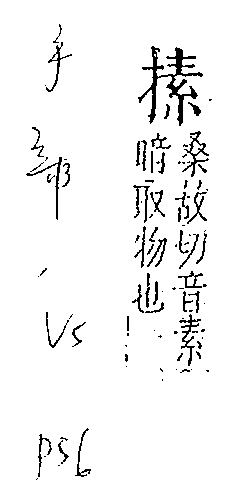 㨞
桑故切音素
暗取物也
手部
V5
P56